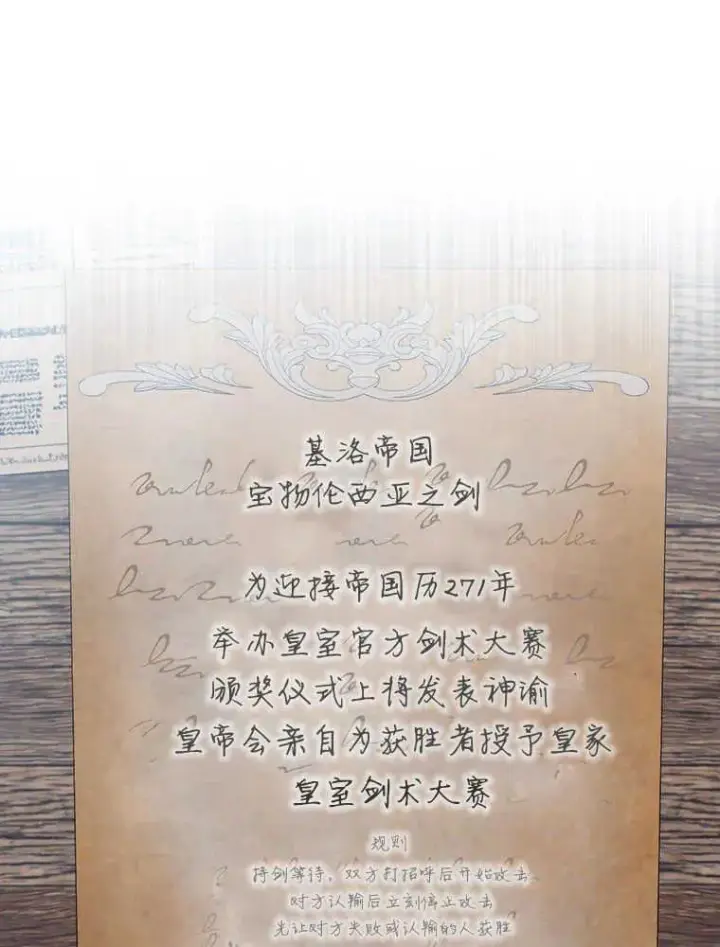 基洛帝国
宝物伦西亚之剑
为迎接帝国历271年
举办皇室官方剑术大赛
颁奖仪式上将发表神谕
皇帝会亲自为获胜者授予皇家
皇室剑术大赛
规则
持剑等待，双方打招呼后开始攻击
对方认输后立刻停止攻击
先让对方失败或认输的人获胜